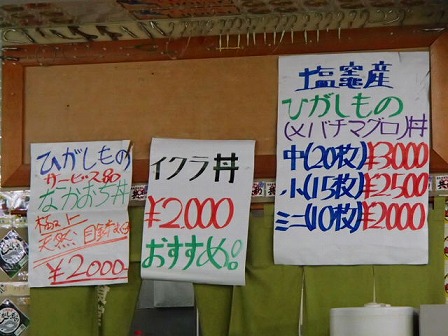 ひがしもの
サービス品
なかおち丼
極上
天然 目鉢まぐろ
¥2.000-
イクラ丼
¥2.000
おすすめ!
塩竈産
ひがしもの
(メバチマグロ)丼
中(20枚)¥3000
小(15枚)¥2500
ミニ(10枚)¥2000